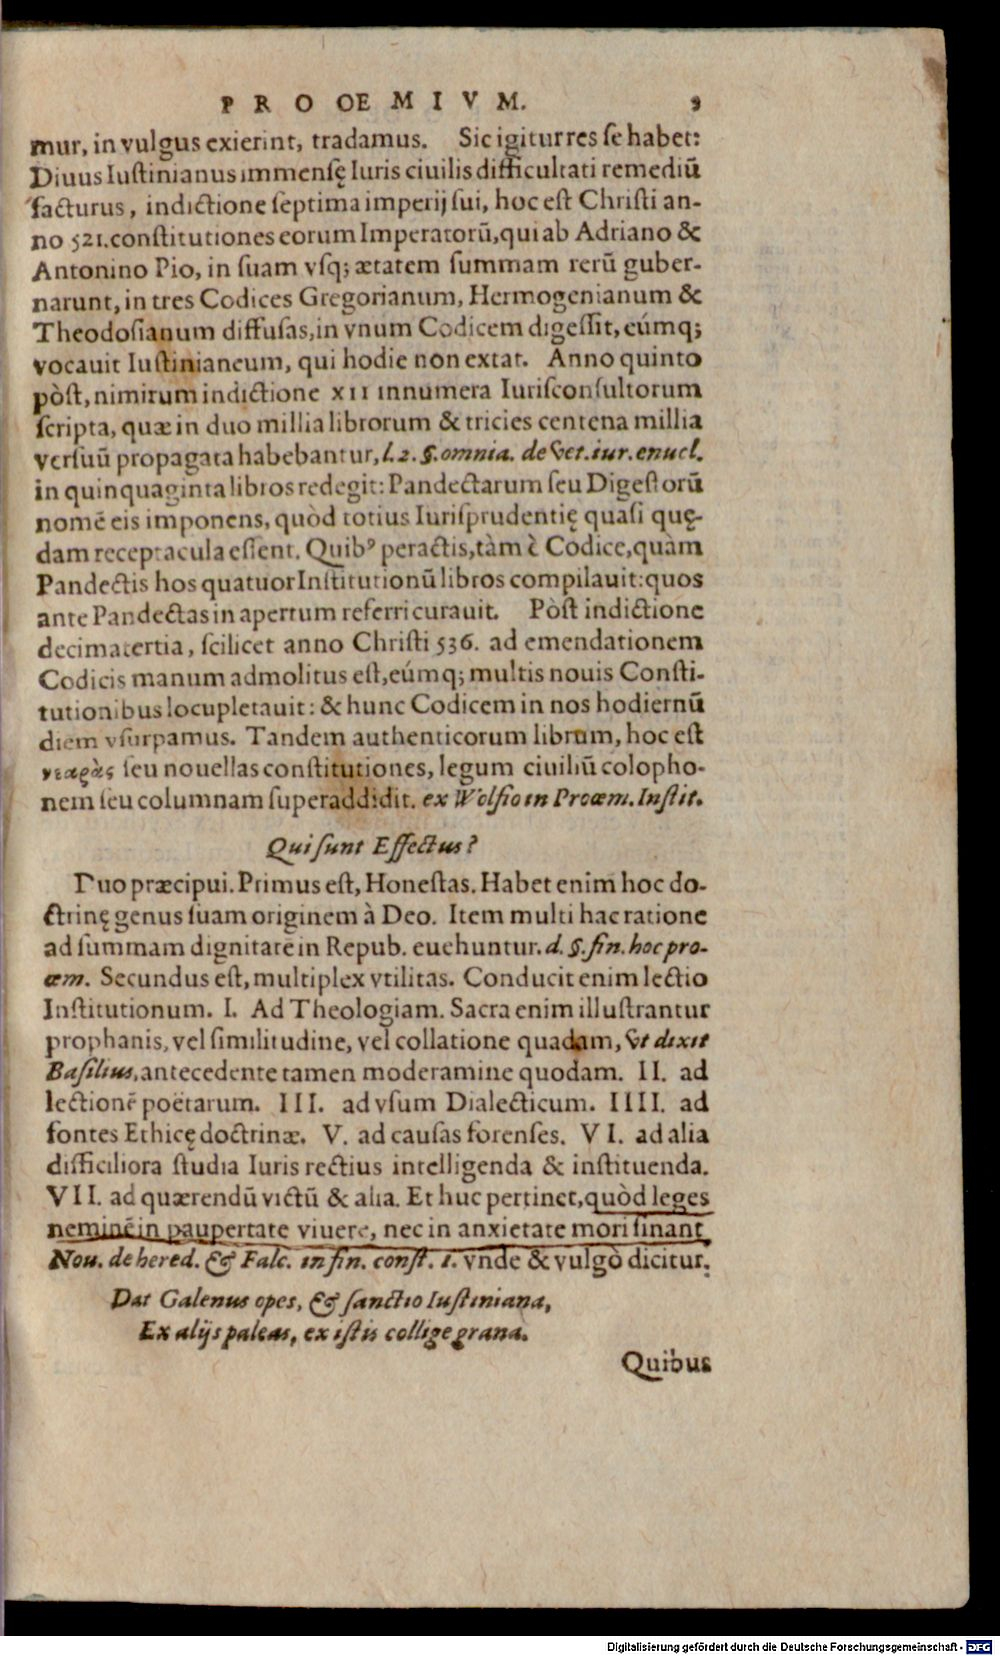 PROOEMIVM. 9
mur, in vulgus exierint, tradamus. Sic igitur res se habet:
Diuus Iustinianus immensę Iuris ciuilis difficultati remediū
facturus, indictione septima imperij sui, hoc est Christi an-
no 521. constitutiones eorum Imperatorū, qui ab Adriano &
Antonino Pio, in suam vsq; ætatem summam rerū guber-
narunt, in tres Codices Gregorianum, Hermogenianum &
Theodosianum diffusas, in vnum Codicem digessit, eúmq;
vocauit Iustinianeum, qui hodie non extat. Anno quinto
pòst, nimirum indictione XII innumera Iurisconsultorum
scripta, quæ in duo millia librorum & tricies centena millia
versuū propagata habebantur, l. 2. §. omnia. de vet. iur. enucl.
in quinquaginta libros redegit: Pandectarum seu Digestorū
nomē eis imponens, quòd totius Iurisprudentię quasi quę-
dam receptacula essent. Quibꝰ peractis, tàm è Codice, quàm
Pandectis hos quatuor Institutionū libros compilauit: quos
ante Pandectas in apertum referri curauit. Pòst indictione
decimatertia, scilicet anno Christi 536. ad emendationem
Codicis manum admolitus est, eúmq; multis nouis Consti-
tutionibus locupletauit: & hunc Codicem in nos hodiernū
diem vsurpamus. Tandem authenticorum librum, hoc est
νεαρὰς seu nouellas constitutiones, legum ciuiliū colopho-
nem seu columnam superaddidit. ex Wolfio in Proœm. Instit.
Qui sunt Effectus?
Duo præcipui. Primus est, Honestas. Habet enim hoc do-
ctrinę genus suam originem à Deo. Item multi hac ratione
ad summam dignitatē in Repub. euehuntur. d. §. fin. hoc pro-
œm. Secundus est, multiplex vtilitas. Conducit enim lectio
Institutionum. I. Ad Theologiam. Sacra enim illustrantur
prophanis, vel similitudine, vel collatione quadam, vt dixit
Basilius, antecedente tamen moderamine quodam. II. ad
lectionē poëtarum. III. ad vsum Dialecticum. IIII. ad
fontes Ethicę doctrinæ. V. ad causas forenses. VI. ad alia
difficiliora studia Iuris rectius intelligenda & instituenda.
VII. ad quærendū victū & alia. Et huc pertinet, quòd leges
neminē in paupertate viuere, nec in anxietate mori sinant
Nou. de hered. & Falc. in fin. const. 1. vnde & vulgò dicitur.
Dat Galenus opes, & sanctio Iustiniana,
Ex alijs paleas, ex istis collige grana.
Quibus
Digitalisierung gefördert durch die Deutsche Forschungsgemeinschaft - DFG